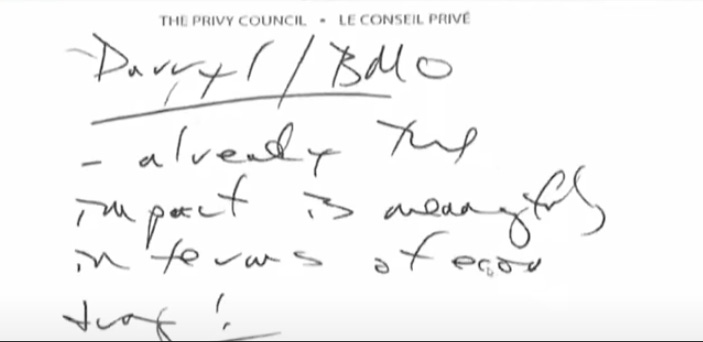 THE PRIVY COUNCIL • LE CONSEIL PRIVÉ
Darryl / BMO
- already the
impact is meaningful
in terms of econ